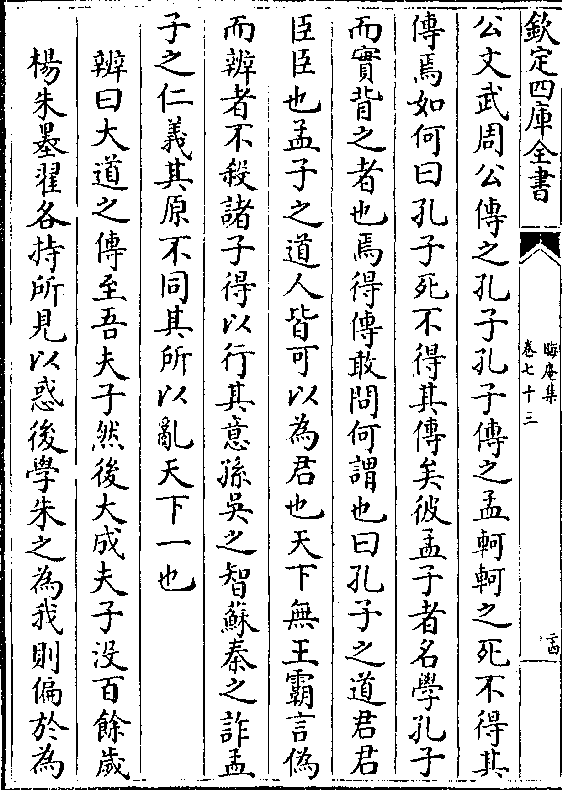 欽定四庫全書
晦庵集
卷七十三
公文武周公傳之孔子孔子傳之孟軻軻之死不得其
傳焉如何曰孔子死不得其傳矣彼孟子者名學孔子
而實背之者也焉得傳敢問何謂也曰孔子之道君君
臣臣也孟子之道人皆可以為君也天下無王霸言偽
而辨者不殺諸子得以行其意孫吳之智蘇秦之詐孟
子之仁義其原不同其所以亂天下一也
辨曰大道之傳至吾夫子然後大成夫子没百餘歲
楊朱墨翟各持所見以惑後學朱之為我則偏於為